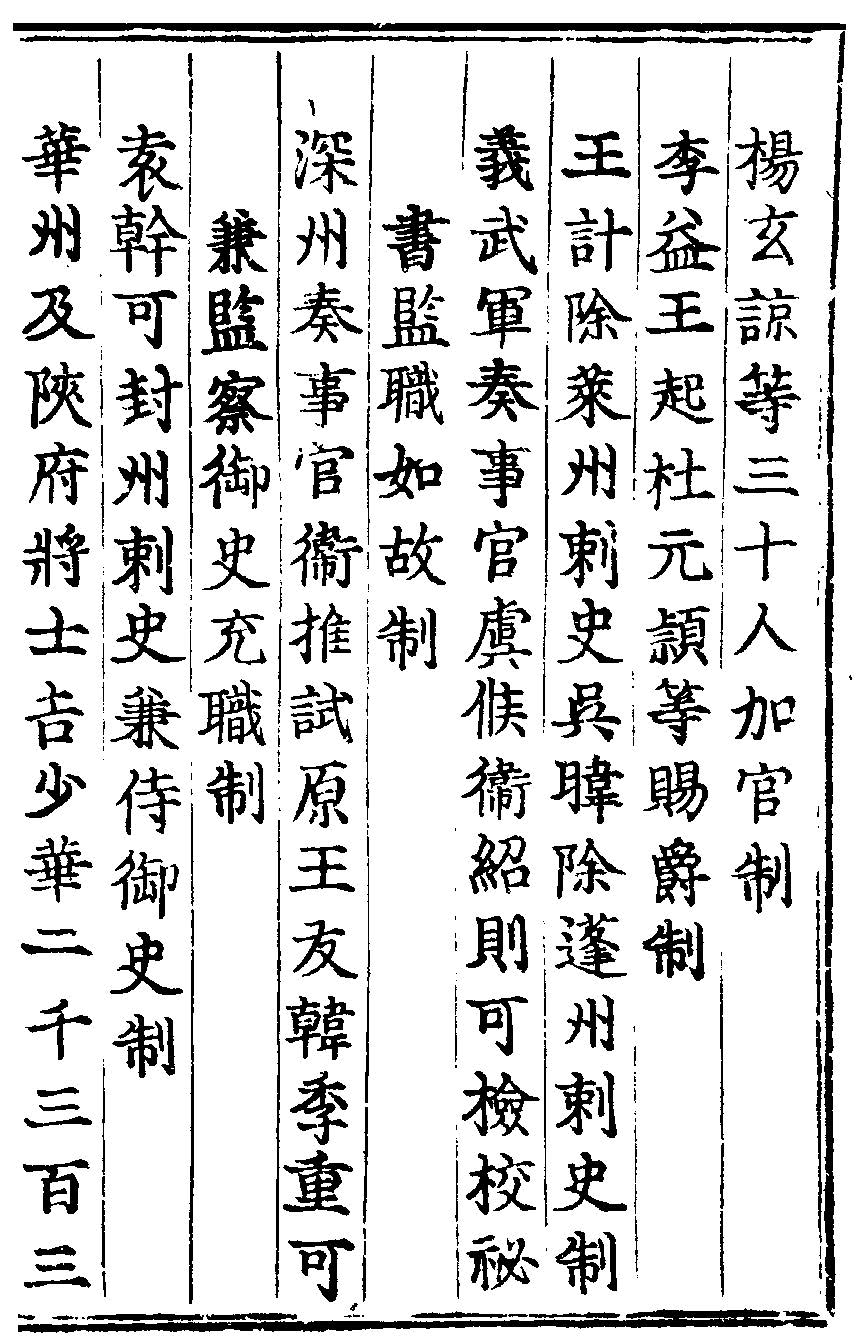 楊玄諒等三十人加官制
李益王起杜元頴等賜爵制
王計除萊州刺史吳暐除蓬州刺史制
義武軍奏事官虞候衞紹則可檢校祕
書監職如故制
深州奏事官衞推試原王友韓季重可
兼監察御史充職制
袁幹可封州刺史兼侍御史制
華州及陝府將士吉少華二千三百三